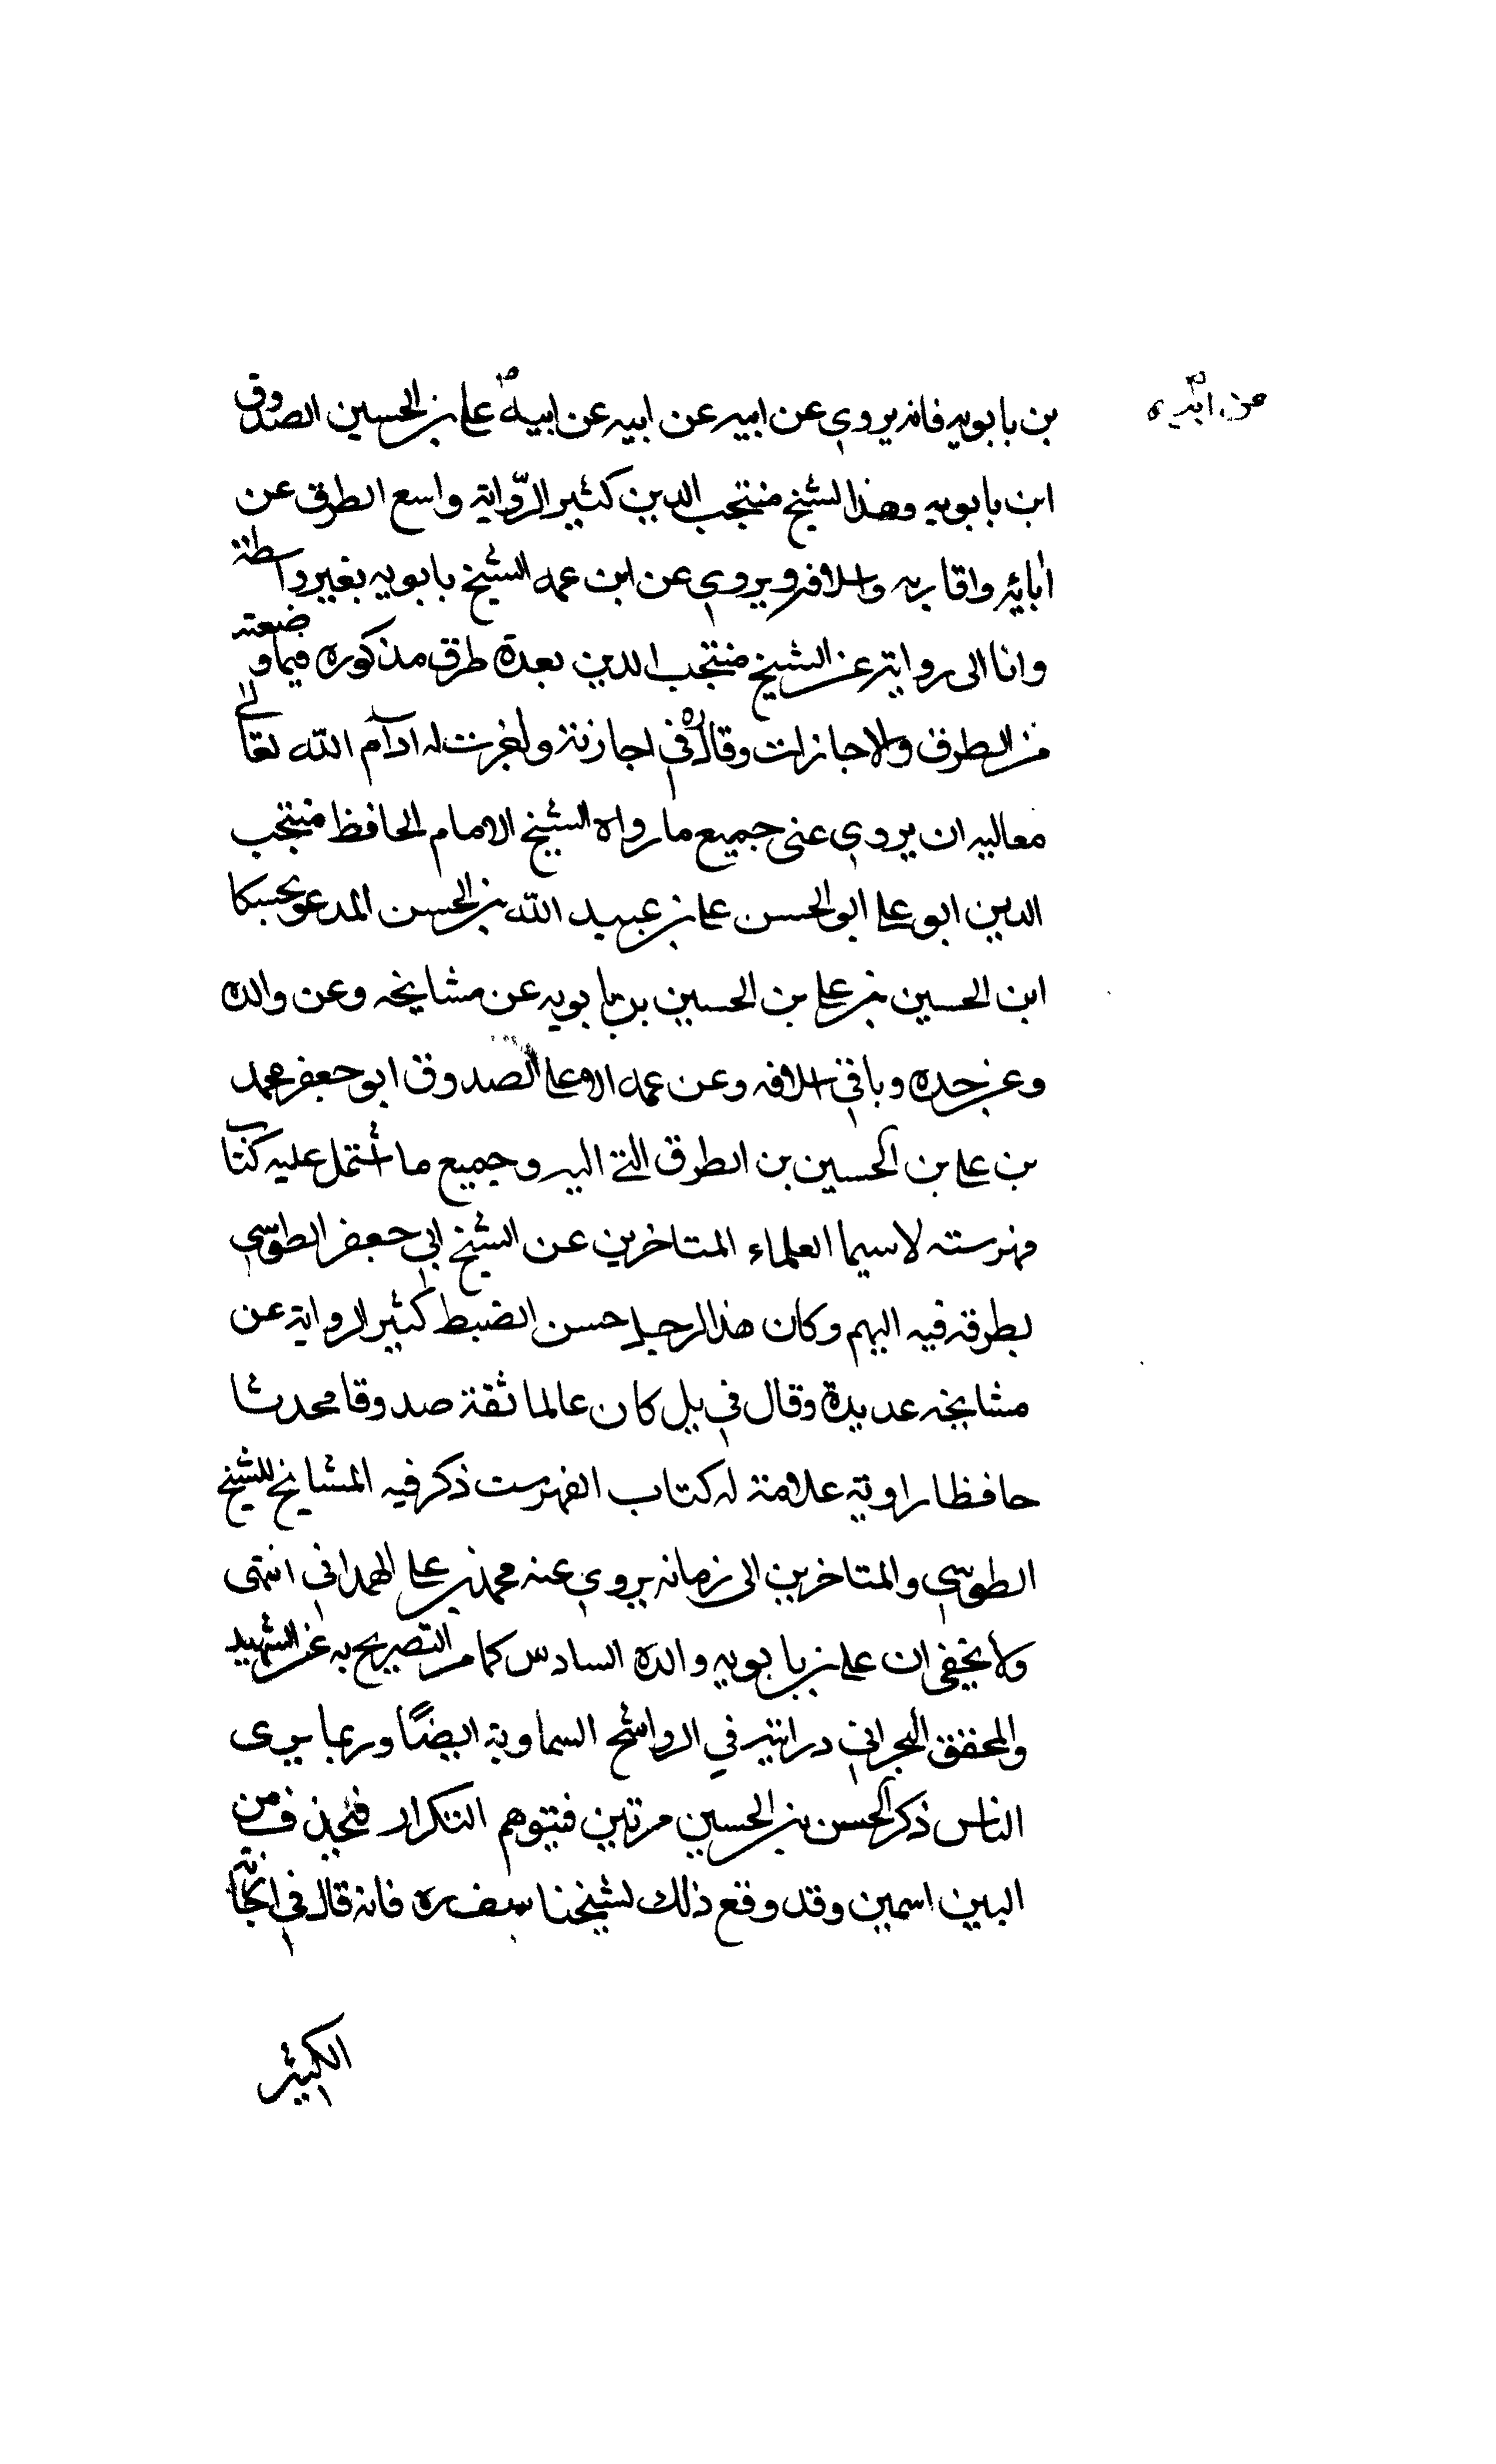 بن بابويه فانه يروي عن ابيه عن ابيه عن ابيه علي بن الحسين الصدوق
عن ابيه
ابن بابويه وهذا الشيخ منتجب الدين كثير الرّواية واسع الطرق عن
ابائه واقاربه واسلافه ويروي عن ابن عمه الشيخ بابويه بغير واسطة
وانا الى روايته عن الشيخ منتجب الدين بعدة طرق مذكوره فيما وضعته
من الطرق والاجازات وقال ره في اجازته واجزت له ادام الله تعالى
معاليه ان يروي عنى جميع ما رواه الشيخ الامام الحافظ منتجب
الدين ابو علي ابو الحسن علي بن عبيد الله بن الحسن المدعو بحسكا
ابن الحسين بن علي بن الحسين بن بابويه عن مشايخه وعن والده
وعن جده وباقي اسلافه وعن عمه الاعلى الصدوق ابو جعفر محمد
بن علي بن الحسين بن الطرق التي اليه وجميع ما اشتمل عليه كتاب
فهرسته لاسيما العلماء المتاخرين عن الشيخ ابي جعفر الطوسي
بطرقه فيه اليهم وكان هذا الرجل حسن الضبط كثير الرواية عن
مشايخه عديدة وقال في يل كان عالما ثقة صدوقا محدثا
حافظا راوية علامة له كتاب الفهرست ذكر فيه المشايخ للشيخ
الطوسي والمتاخرين الى زمانه يروي عنه محمد بن علي الهمداني انتهى
ولا يخفى ان علي بن بابويه والده السادس كما مر التصريح به عن الشهيد
والمحقق البحراني درايته في الرواشح السماوية ايضًا وربما يرى
الناس ذكر الحسن بن الحسين مرتين فيتوهم التكرار فيحذف من
البين اسمين وقد وقع ذلك لشيخنا سف ره فانه قال في اجازته
الكبير